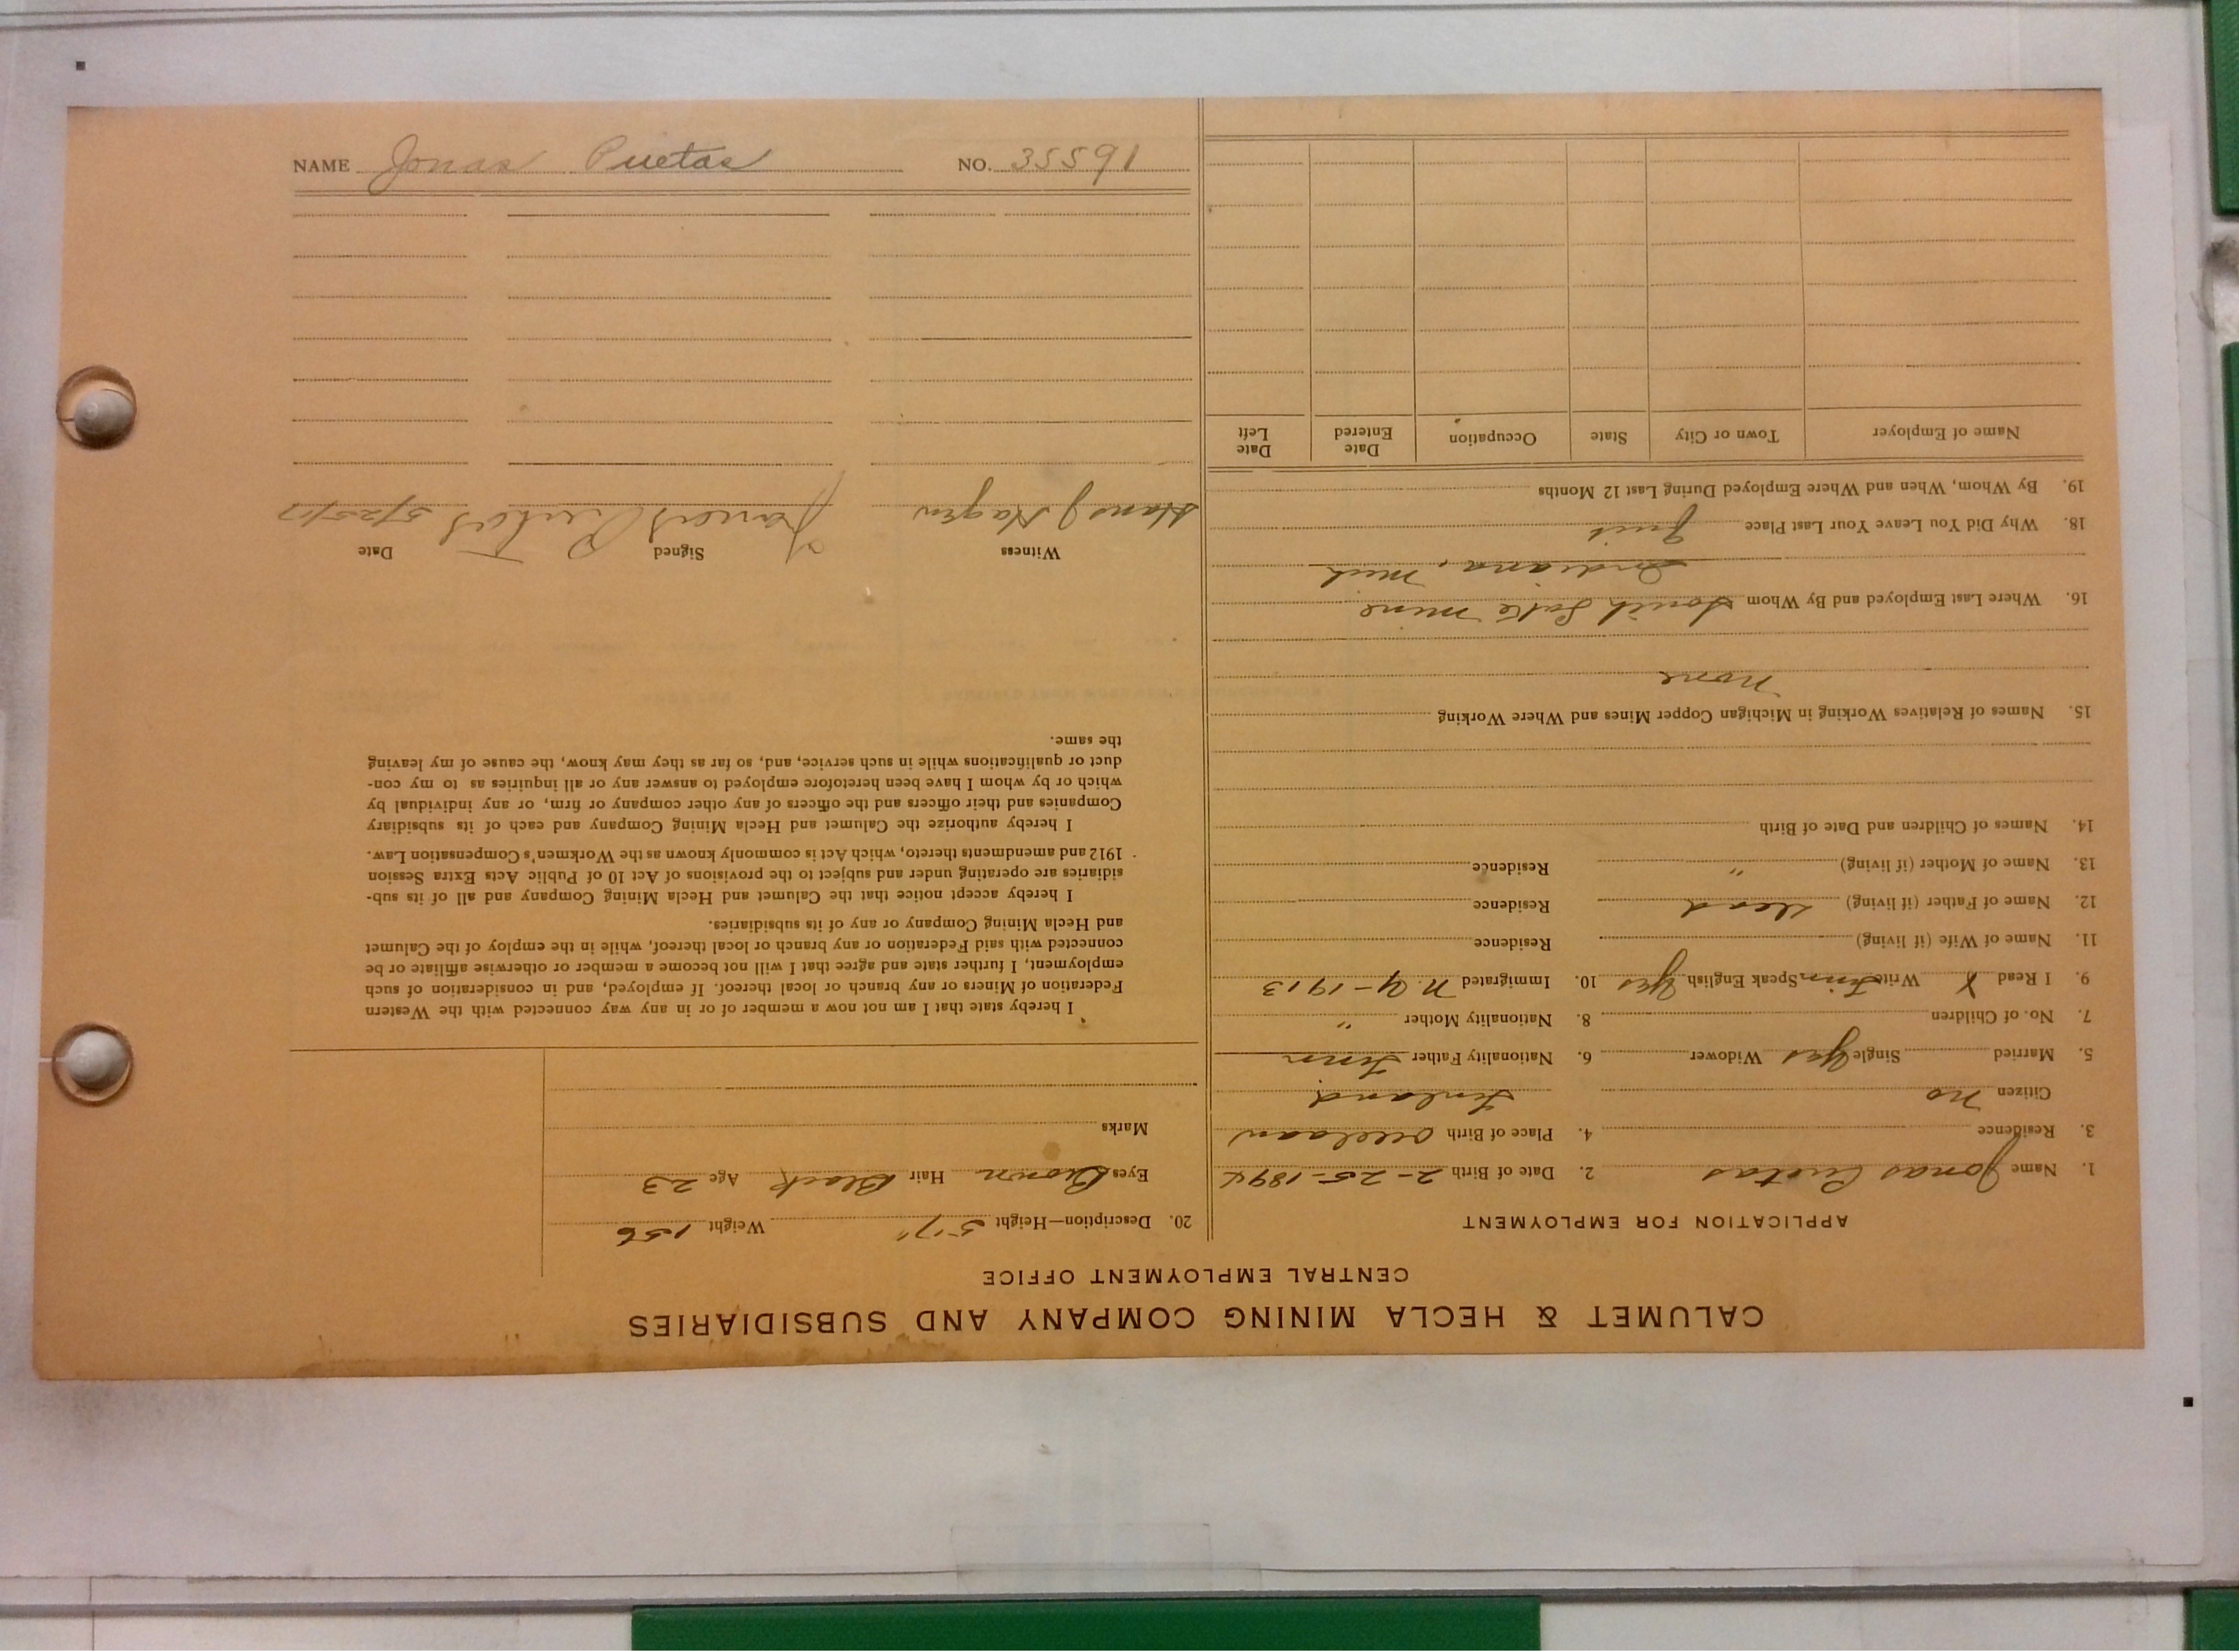 NAME Jonas Puetas NO. 35591
CALUMET & HECLA MINING COMPANY AND SUBSIDIARIES
CENTRAL EMPLOYMENT OFFICE
APPLICATION FOR EMPLOYMENT
1. Name Jonas Puetas 2. Date of Birth 2-25-1894
3. Residence 4. Place of Birth
Citizen no Finland
5. Married Single Yes Widower 6. Nationality Father Finn
7. No. of Children 8. Nationality Mother "
9. I Read Y Write Finn Speak English Yes 10. Immigrated N.Y-1913
11. Name of Wife (if living) Residence
12. Name of Father (if living) dead Residence
13. Name of Mother (if living) " Residence
14. Names of Children and Date of Birth
15. Names of Relatives Working in Michigan Copper Mines and Where Working
None
16. Where Last Employed and By Whom South Lake mine
Indiana, Mich
18. Why Did You Leave Your Last Place Quit
19. By Whom, When and Where Employed During Last 12 Months
Name of Employer Town or City State Occupation Date Entered Date Left
20. Description—Height 5'7" Weight 156
Eyes Brown Hair Black Age 23
Marks
I hereby state that I am not now a member of or in any way connected with the Western
Federation of Miners or any branch or local thereof. If employed, and in consideration of such
employment, I further state and agree that I will not become a member or otherwise affiliate or be
connected with said Federation or any branch or local thereof, while in the employ of the Calumet
and Hecla Mining Company or any of its subsidiaries.
I hereby accept notice that the Calumet and Hecla Mining Company and all of its sub-
sidiaries are operating under and subject to the provisions of Act 10 of Public Acts Extra Session
1912 and amendments thereto, which Act is commonly known as the Workmen's Compensation Law.
I hereby authorize the Calumet and Hecla Mining Company and each of its subsidiary
Companies and their officers and the officers of any other company or firm, or any individual by
which or by whom I have been heretofore employed to answer any or all inquiries as to my con-
duct or qualifications while in such service, and, so far as they may know, the cause of my leaving
the same.
Witness Signed Date
Hans J Hagen 5/25/17